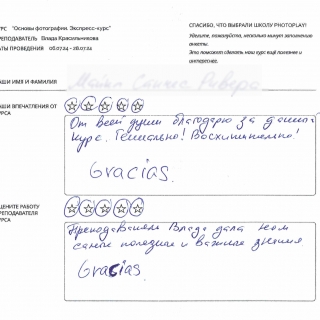 УРС "Основы фотографии. Экспресс-курс"
РЕПОДАВАТЕЛЬ Влада Красильникова
АТЫ ПРОВЕДЕНИЯ 06.07.24 - 28.07.24
СПАСИБО, ЧТО ВЫБРАЛИ ШКОЛУ PHOTOPLAY!
Уделите, пожалуйста, несколько минут заполнению
анкеты.
Это поможет сделать наш курс ещё полезнее и
интереснее.
АШИ ИМЯ И ФАМИЛИЯ
АШИ ВПЕЧАТЛЕНИЯ ОТ
УРСА
От всей души благодарю за данный
курс. Гениально! Восхитительно!
Gracias.
ЦЕНИТЕ РАБОТУ
РЕПОДАВАТЕЛЯ
УРСА
Преподаватель Влада дала нам
самые полезные и важные знания
Gracias.